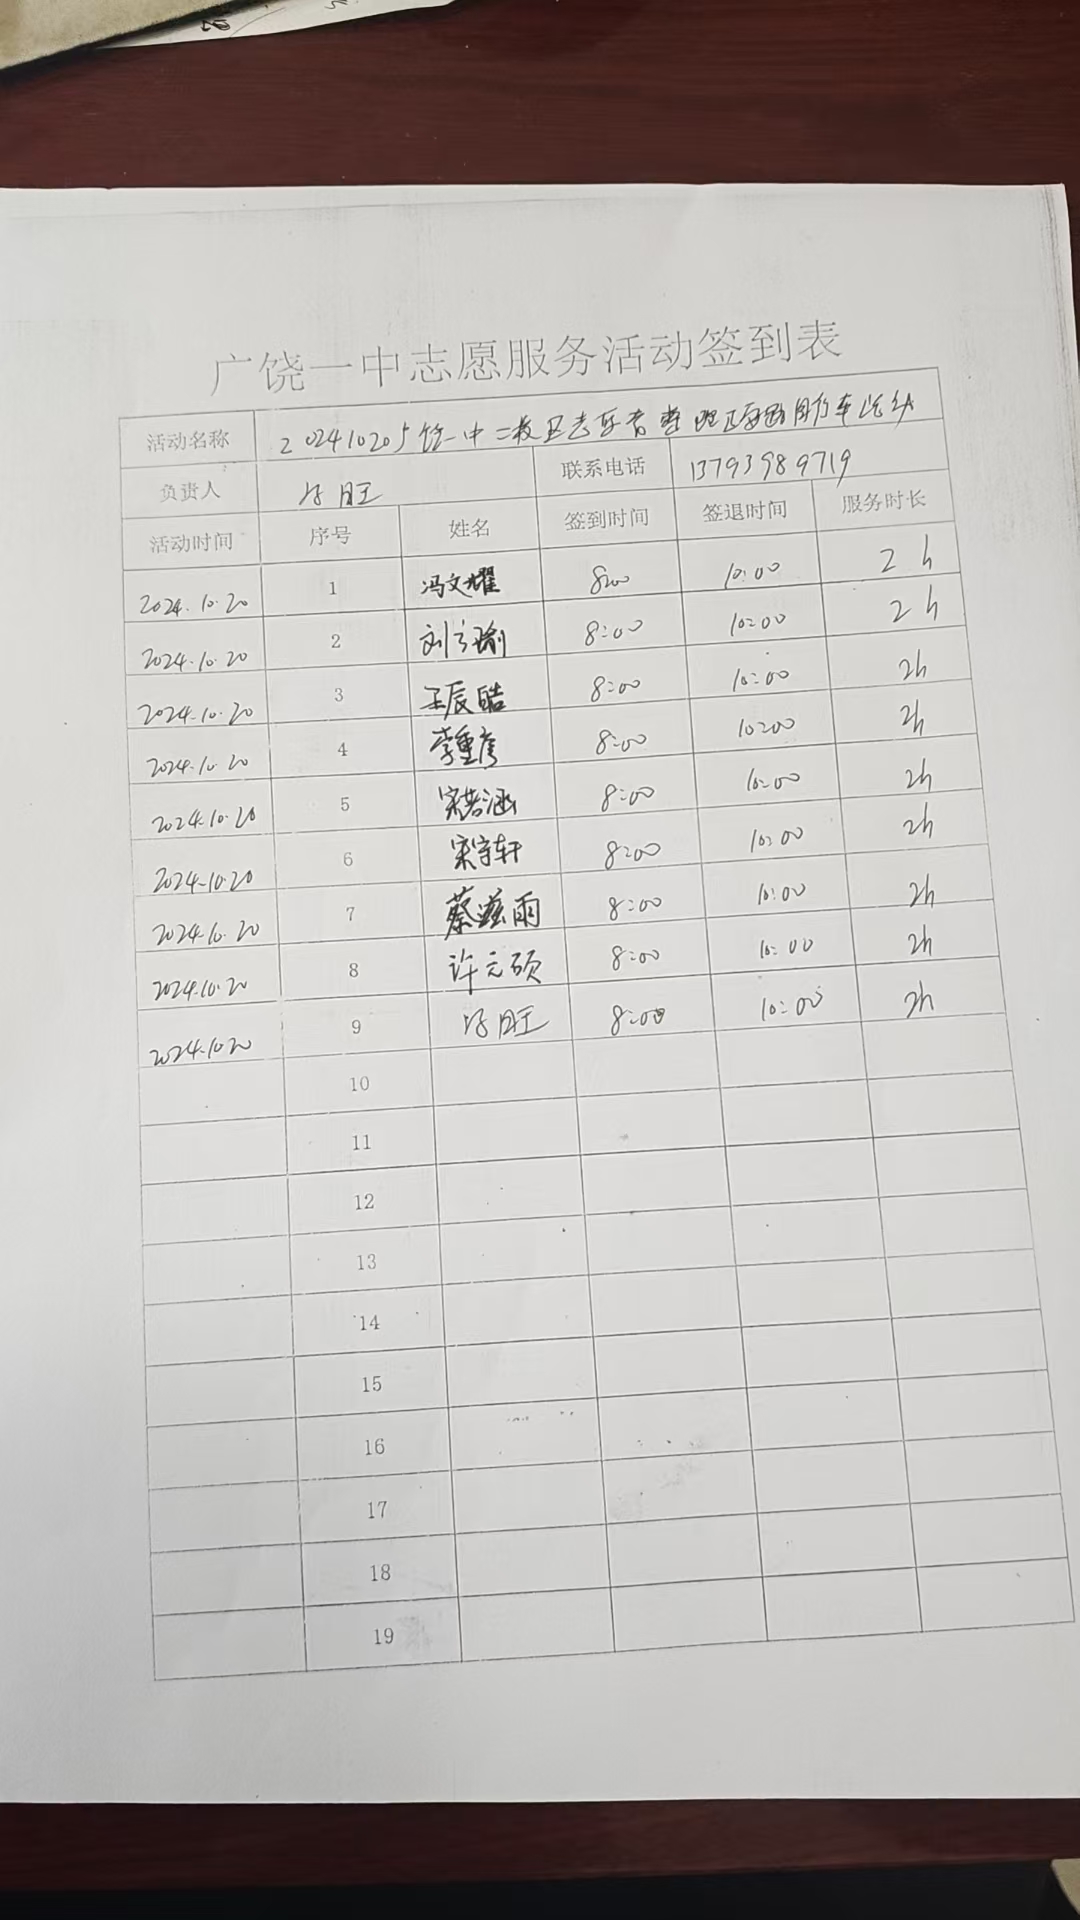 广饶一中志愿服务活动签到表
活动名称 20241020广饶一中二校区志愿者整理自行车
负责人 旺 联系电话 13793989719
活动时间 序号 姓名 签到时间 签退时间 服务时长
2024.10.20 1 冯文耀 8:00 10:00 2h
2024.10.20 2 刘子瑜 8:00 10:00 2h
2024.10.20 3 王辰皓 8:00 10:00 2h
2024.10.20 4 李重彦 8:00 10:00 2h
2024.10.20 5 宋若涵 8:00 10:00 2h
2024.10.20 6 宋宇轩 8:00 10:00 2h
2024.10.20 7 蔡滋雨 8:00 10:00 2h
2024.10.20 8 许元硕 8:00 10:00 2h
2024.10.20 9 旺 8:00 10:00 2h
10
11
12
13
14
15
16
17
18
19